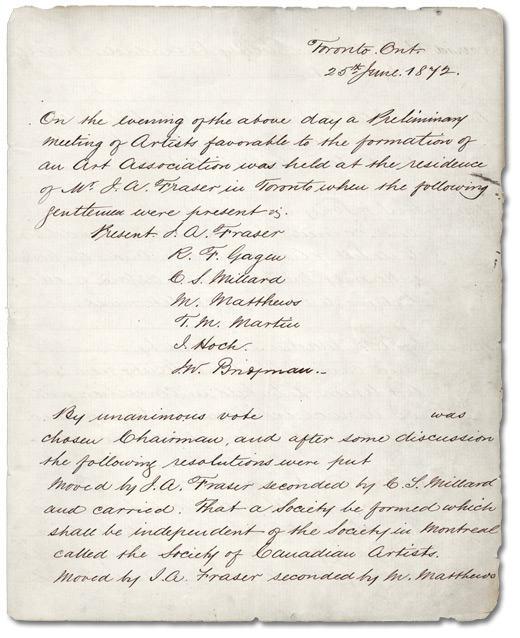 Toronto. Ont
25th June. 1872.
On the evening of the above day a Preliminary
meeting of Artists favorable to the formation of
an Art Association was held at the residence
of Mr J. A. Fraser in Toronto when the following
gentlemen were present viz.
Present J. A. Fraser
R. F. Gagen
C. S. Millard
M. Matthews
T. M. Martin
J. Hoch.
JW. Bridgman. _
By unanimous vote was
chosen Chairman, and after some discussion
the following resolutions were put
Moved by J. A. Fraser seconded by C. S. Millard
and carried. That a Society be formed which
shall be independent of the Society in Montreal
called the Society of Canadian Artists.
Moved by J. A. Fraser seconded by M. Matthews